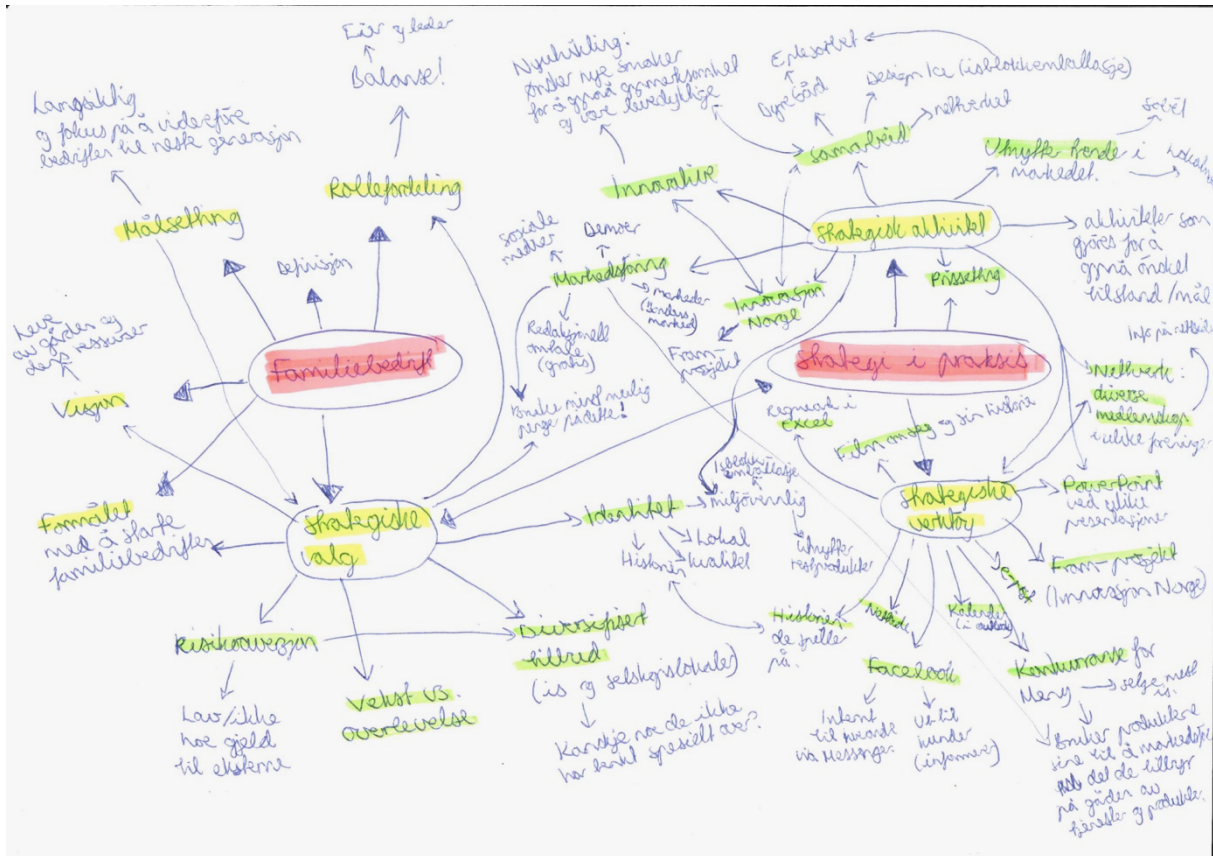 Eier og leder
Balanse!
Langsiktig
og fokus på å videreføre
bedriften til neste generasjon
Rollefordeling
Målsetting
Definisjon
Leve
av gården og
dens ressurser
Visjon
Familiebedrift
Formålet
med å starte
familiebedriften
Strategiske
valg
Risikoaversjon
Lav/ikke
noe gjeld
til eksterne
Vekst vs.
overlevelse
Diversifisert
tilbud
(is og selskapslokaler)
Kanskje noe de ikke
har tenkt spesielt over?
Nyutvikling:
Ønsker nye smaker
for å oppnå oppmerksomhet
og være levedyktige
Innovative
Sosiale
medier
Demoer
Markedsføring
markeder
(Bondens
marked)
Redaksjonell
omtale
(gratis)
Bruke minst mulig
penger på dette!
Innovasjon
Norge
Fram-
prosjekt
Identitet
Historien
Lokal
kvalitet
miljøvennlig
Isblokk-
emballasje
Utnytter
restprodukter
Eplesorbet
Dyre Gård
Design Ice (isblokkemballasje)
nettverket
Samarbeid
Utnytter trender i
markedet.
Lokalmat
Strategisk aktivitet
aktiviteter som
gjøres for å
oppnå ønsket
tilstand/mål
Prissetting
Strategi i praksis
Info på nettside
Nettverk:
diverse
medlemskap
i ulike foreninger
Regneark i
Excel
Film om seg og sin historie
Strategiske
verktøy
PowerPoint
ved ulike
presentasjoner
Fram-prosjekt
(Innovasjon Norge)
e-post
Historien
de spiller
på.
Nettside
Kalender
(i outlook)
Facebook
Internt
til hverandre
via Messenger.
Ut til
kunder
(informere)
Konkurranse for
Meny
selge mest
is.
Bruker produktene
sine til å markedsføre
det de tilbyr
på gården av
tjenester og produkter.